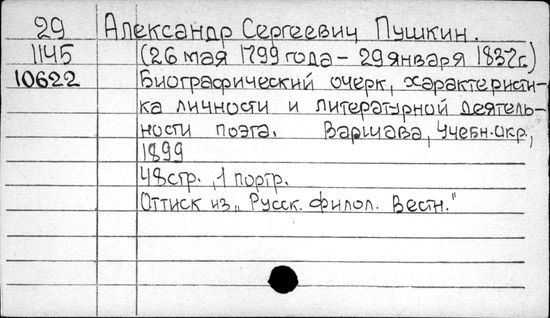 29 Александр Сергеевич Пушкин.
1145 (26 мая 1799 года – 29 января 1837 г.)
10622 Биографический очерк, характеристи-
ка личности и литературной деятель-
ности поэта. Варшава, Учебн. Окр.,
1899
48стр., 1 портр.
Оттиск из „Русск. филол. Вестн."